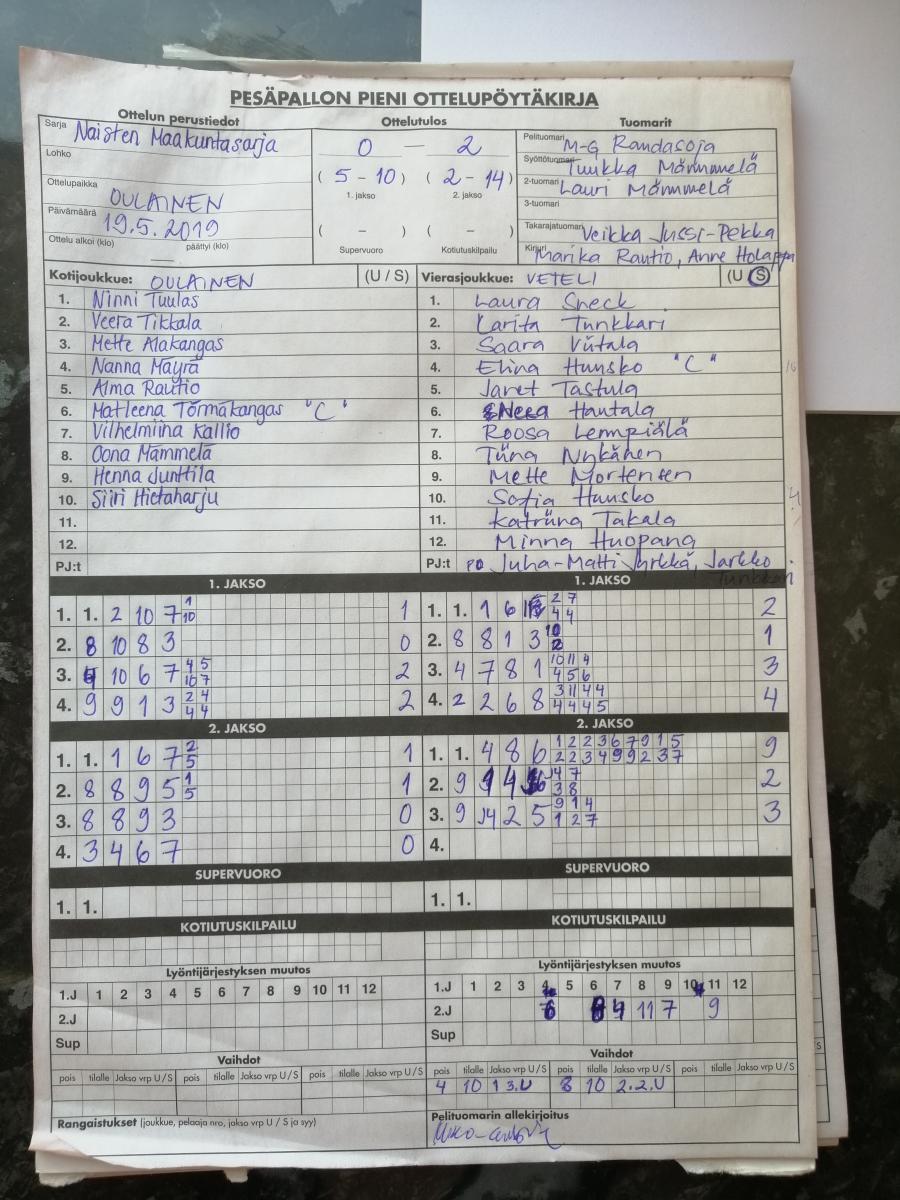 PESÄPALLON PIENI OTTELUPÖYTÄKIRJA
Ottelun perustiedot
Sarja Naisten Maakuntasarja
Lohko
Ottelupaikka OULAINEN
Päivämäärä 19.5.2019
Ottelu alkoi (klo) päättyi (klo)
Ottelutulos
0 — 2
( 5 - 10 ) ( 2 - 14 )
1. jakso 2. jakso
( - ) ( - )
Supervuoro Kotiutuskilpailu
Tuomarit
Pelituomari M-G Randasoja
Syöttötuomari Tuukka Mämmelä
2-tuomari Lauri Mämmelä
3-tuomari
Takarajatuomari Veikka Jussi-Pekka
Kirjuri Marika Rautio, Anne Holappa
Kotijoukkue: OULAINEN (U / S)
1. Ninni Tuulas
2. Veera Tikkala
3. Mette Alakangas
4. Nanna Mäyrä
5. Alma Rautio
6. Matleena Törmäkangas "C"
7. Vilhelmiina Kallio
8. Oona Mämmelä
9. Henna Junttila
10. Siiri Hietaharju
11.
12.
PJ:t
Vierasjoukkue: VETELI (U / S)
1. Laura Sneck
2. Carita Tunkkari
3. Saara Viitala
4. Elina Hunsko "C"
5. Jaret Tastula
6. Neea Hautala
7. Roosa Lempiälä
8. Tiina Nykänen
9. Mette Mortensen
10. Sofia Hunsko
11. Katriina Takala
12. Minna Huopana
PJ:t PJ Juha-Matti Jyrkkä, Jarkko
Tunkkari
1. JAKSO
1. 1. 2 10 7 1 1
10
2. 8 10 8 3 0
3. 4 10 6 7 4 5 2
10 7
4. 9 9 1 3 2 4 2
4 4
2. JAKSO
1. 1. 1 6 7 2 1
5
2. 8 8 9 5 1 1
5
3. 8 8 9 3 0
4. 3 4 6 7 0
SUPERVUORO
1. 1.
KOTIUTUSKILPAILU
Lyöntijärjestyksen muutos
1.J 1 2 3 4 5 6 7 8 9 10 11 12
2.J
Sup
Vaihdot
pois tilalle Jakso vrp U / S pois tilalle Jakso vrp U / S pois tilalle Jakso vrp U / S
Rangaistukset (joukkue, pelaaja nro, jakso vrp U / S ja syy)
1. JAKSO
1. 1. 1 6 2 7 2
4 4
2. 8 8 1 3 10 1
2
3. 4 7 8 1 10 11 4 3
4 5 6
4. 2 2 6 8 3 11 4 4 4
4 4 4 5
2. JAKSO
1. 1. 4 8 6 1 2 2 3 6 7 9 1 5 9
2 2 3 4 9 9 2 3 7
2. 9 4 4 7 2
3 8
3. 9 2 5 9 1 4 3
1 2 7
4.
SUPERVUORO
1. 1.
KOTIUTUSKILPAILU
Lyöntijärjestyksen muutos
1.J 1 2 3 4 5 6 7 8 9 10 11 12
2.J 6 4 11 7 9
Sup
Vaihdot
pois tilalle Jakso vrp U / S pois tilalle Jakso vrp U / S pois tilalle Jakso vrp U / S
4 10 1 3.U 8 10 2.2.U
Pelituomarin allekirjoitus